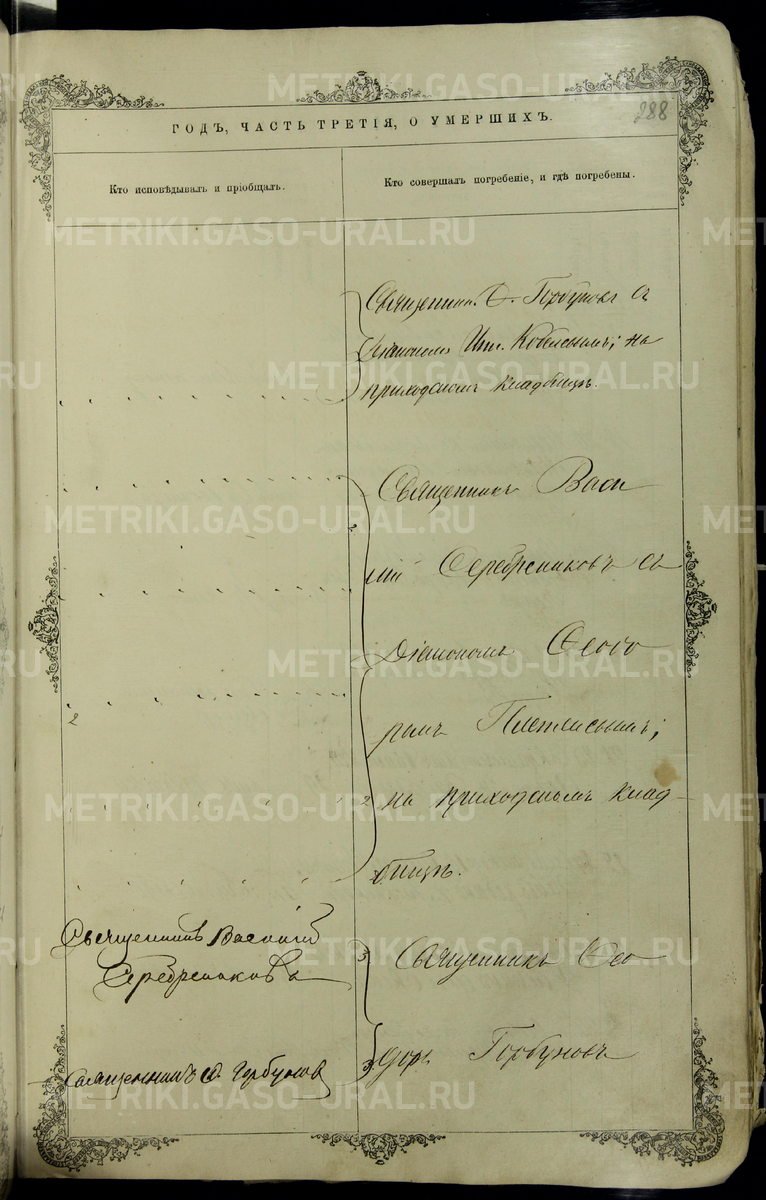 288
ГОДЪ, ЧАСТЬ ТРЕТІЯ, О УМЕРШИХЪ.
Кто исповѣдывалъ и пріобщалъ.
Кто совершалъ погребеніе, и гдѣ погребены.
Священник. Ѳ. Горбуновъ съ
діакономъ Кобелевымъ; на
приходскомъ кладбищѣ.
Священникъ Васи
лій Серебрениковъ съ
Діакономъ Ѳеодо
ромъ
на приходскомъ клад-
бищѣ.
Священникъ Василій
Серебрениковъ
Священникъ Ѳео
доръ Горбуновъ
Священникъ Ѳ. Горбунов
METRIKI.GASO-URAL.RU